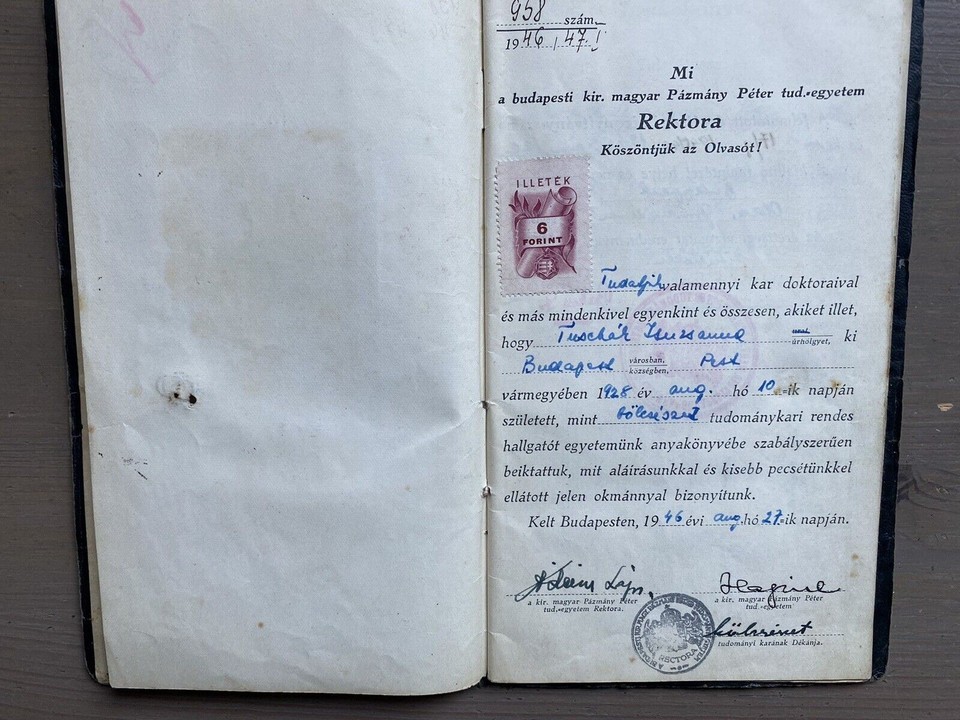 958 szám.
1946/47.I
Mi
a budapesti kir. magyar Pázmány Péter tud.-egyetem
Rektora
Köszöntjük az Olvasót!
ILLETÉK
6
FORINT
Tudatjuk valamennyi kar doktoraival
és más mindenkivel egyenkint és összesen, akiket illet,
hogy Tuschák Zsuzsanna úrhölgyet, ki
Budapest városban, községben, Pest
vármegyében 1928 év aug. hó 10-ik napján
született, mint bölcsészet tudománykari rendes
hallgatót egyetemünk anyakönyvébe szabályszerűen
beiktattuk, mit aláírásunkkal és kisebb pecsétünkkel
ellátott jelen okmánnyal bizonyítunk.
Kelt Budapesten, 1946 évi aug. hó 27-ik napján.
a kir. magyar Pázmány Péter
tud.-egyetem Rektora.
a kir. magyar Pázmány Péter
tud.-egyetem
bölcsészet
tudományi karának Dékánja.
RECTORA